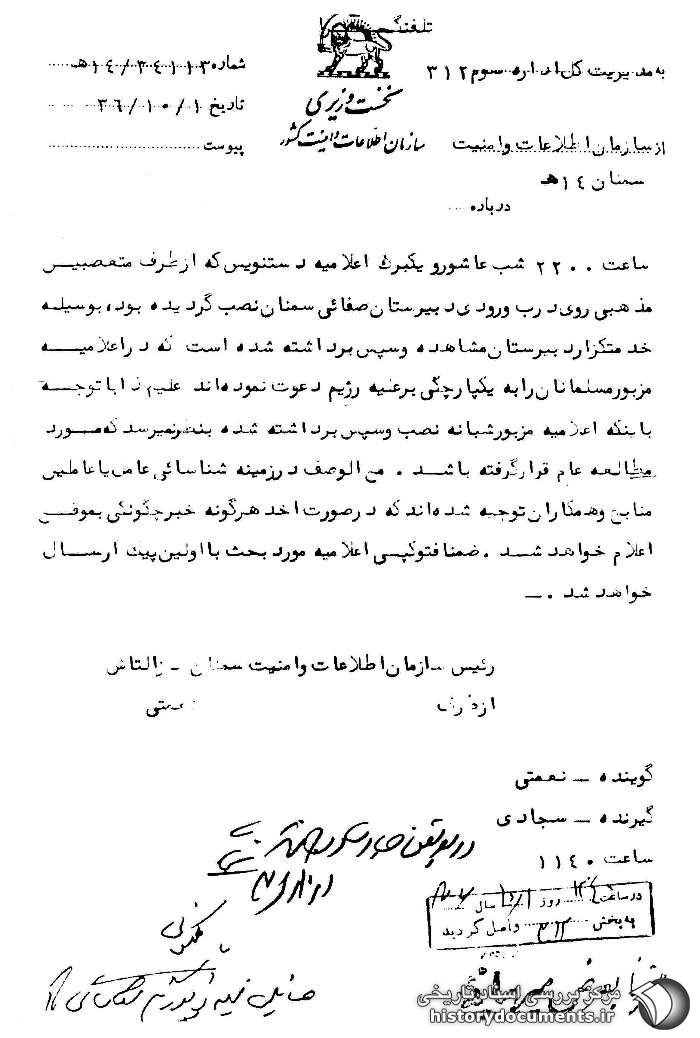 تلفنگرام
به مدیریت کل اداره سوم ۳۱۲
شماره ۱۴/۲۴۱۱۳هـ
نخست وزیری
تاریخ ۳۶/۱۰/۱
از سازمان اطلاعات و امنیت
سازمان اطلاعات و امنیت کشور
پیوست
سمنان ۱۴هـ
درباره
ساعت ۲۲۰۰ شب عاشورو یکبرگ اعلامیه دستنویس که از طرف متعصبین
مذهبی روی درب ورودی دبیرستان صفائی سمنان نصب گردیده بود، بوسیله
خدمتگزار دبیرستان مشاهده و سپس برداشته شده است که در اعلامیه
مزبور مسلمانان را به یکپارچگی بر علیه رژیم دعوت نموده اند علیهذا با توجه
باینکه اعلامیه مزبور شبانه نصب و سپس برداشته شده بنظر نمیرسد که مورد
مطالعه عام قرار گرفته باشد. مع الوصف در زمینه شناسائی عامل یا عاملین
منابع و همکاران توجیه شده اند که در صورت اخذ هرگونه خبر چگونگی بموقع
اعلام خواهد شد. ضمنا فتوکپی اعلامیه مورد بحث با اولین پیک ارسال
خواهد شد.ـ
رئیس سازمان اطلاعات و امنیت سمنان ـ زالتاش
از طرف نعمتی
گوینده ـ نعمتی
گیرنده ـ سجادی
ساعت ۱۱۴۰
در ساعت روز سال
به بخش ۳۱۲ واصل گردید
مرکز بررسی اسناد تاریخی
historydocuments.ir